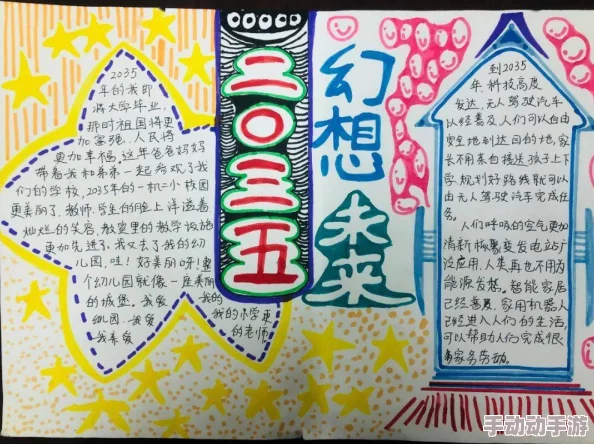 2035
年的我即
将大学毕业,
那时祖国将更
加富强,人民将
更加幸福,这年爸爸妈妈
带着我和弟弟一起参观了我
们的学校,2035年的一机二小校园
更美丽了,教师、学生的脸上洋溢着
灿烂的笑容,教室里的教学设施
更加先进了,我又去了我的幼
儿园,哇!好美丽呀!整
个幼儿园就像一座美丽
的城堡。我爱我的
幼园,我爱我的小学更
我喜爱的老师
二〇三五
幻想
未来
到2035
年,科技高度
发达,无人驾驶汽车
以经普及人们可以自由
安全地到达目的地,家
长不用亲自接送孩子上下
学,规划好路线就可以
由无人驾驶汽车完成任
务。
人们呼吸的空气更加
清新,核聚变发电站广
泛应用,人类再也不用为
能源发愁。智能家居
已经普及,家用机器人
已经进入人们的生活,
可以帮助人们完成很
多家务劳动。
手动动手游